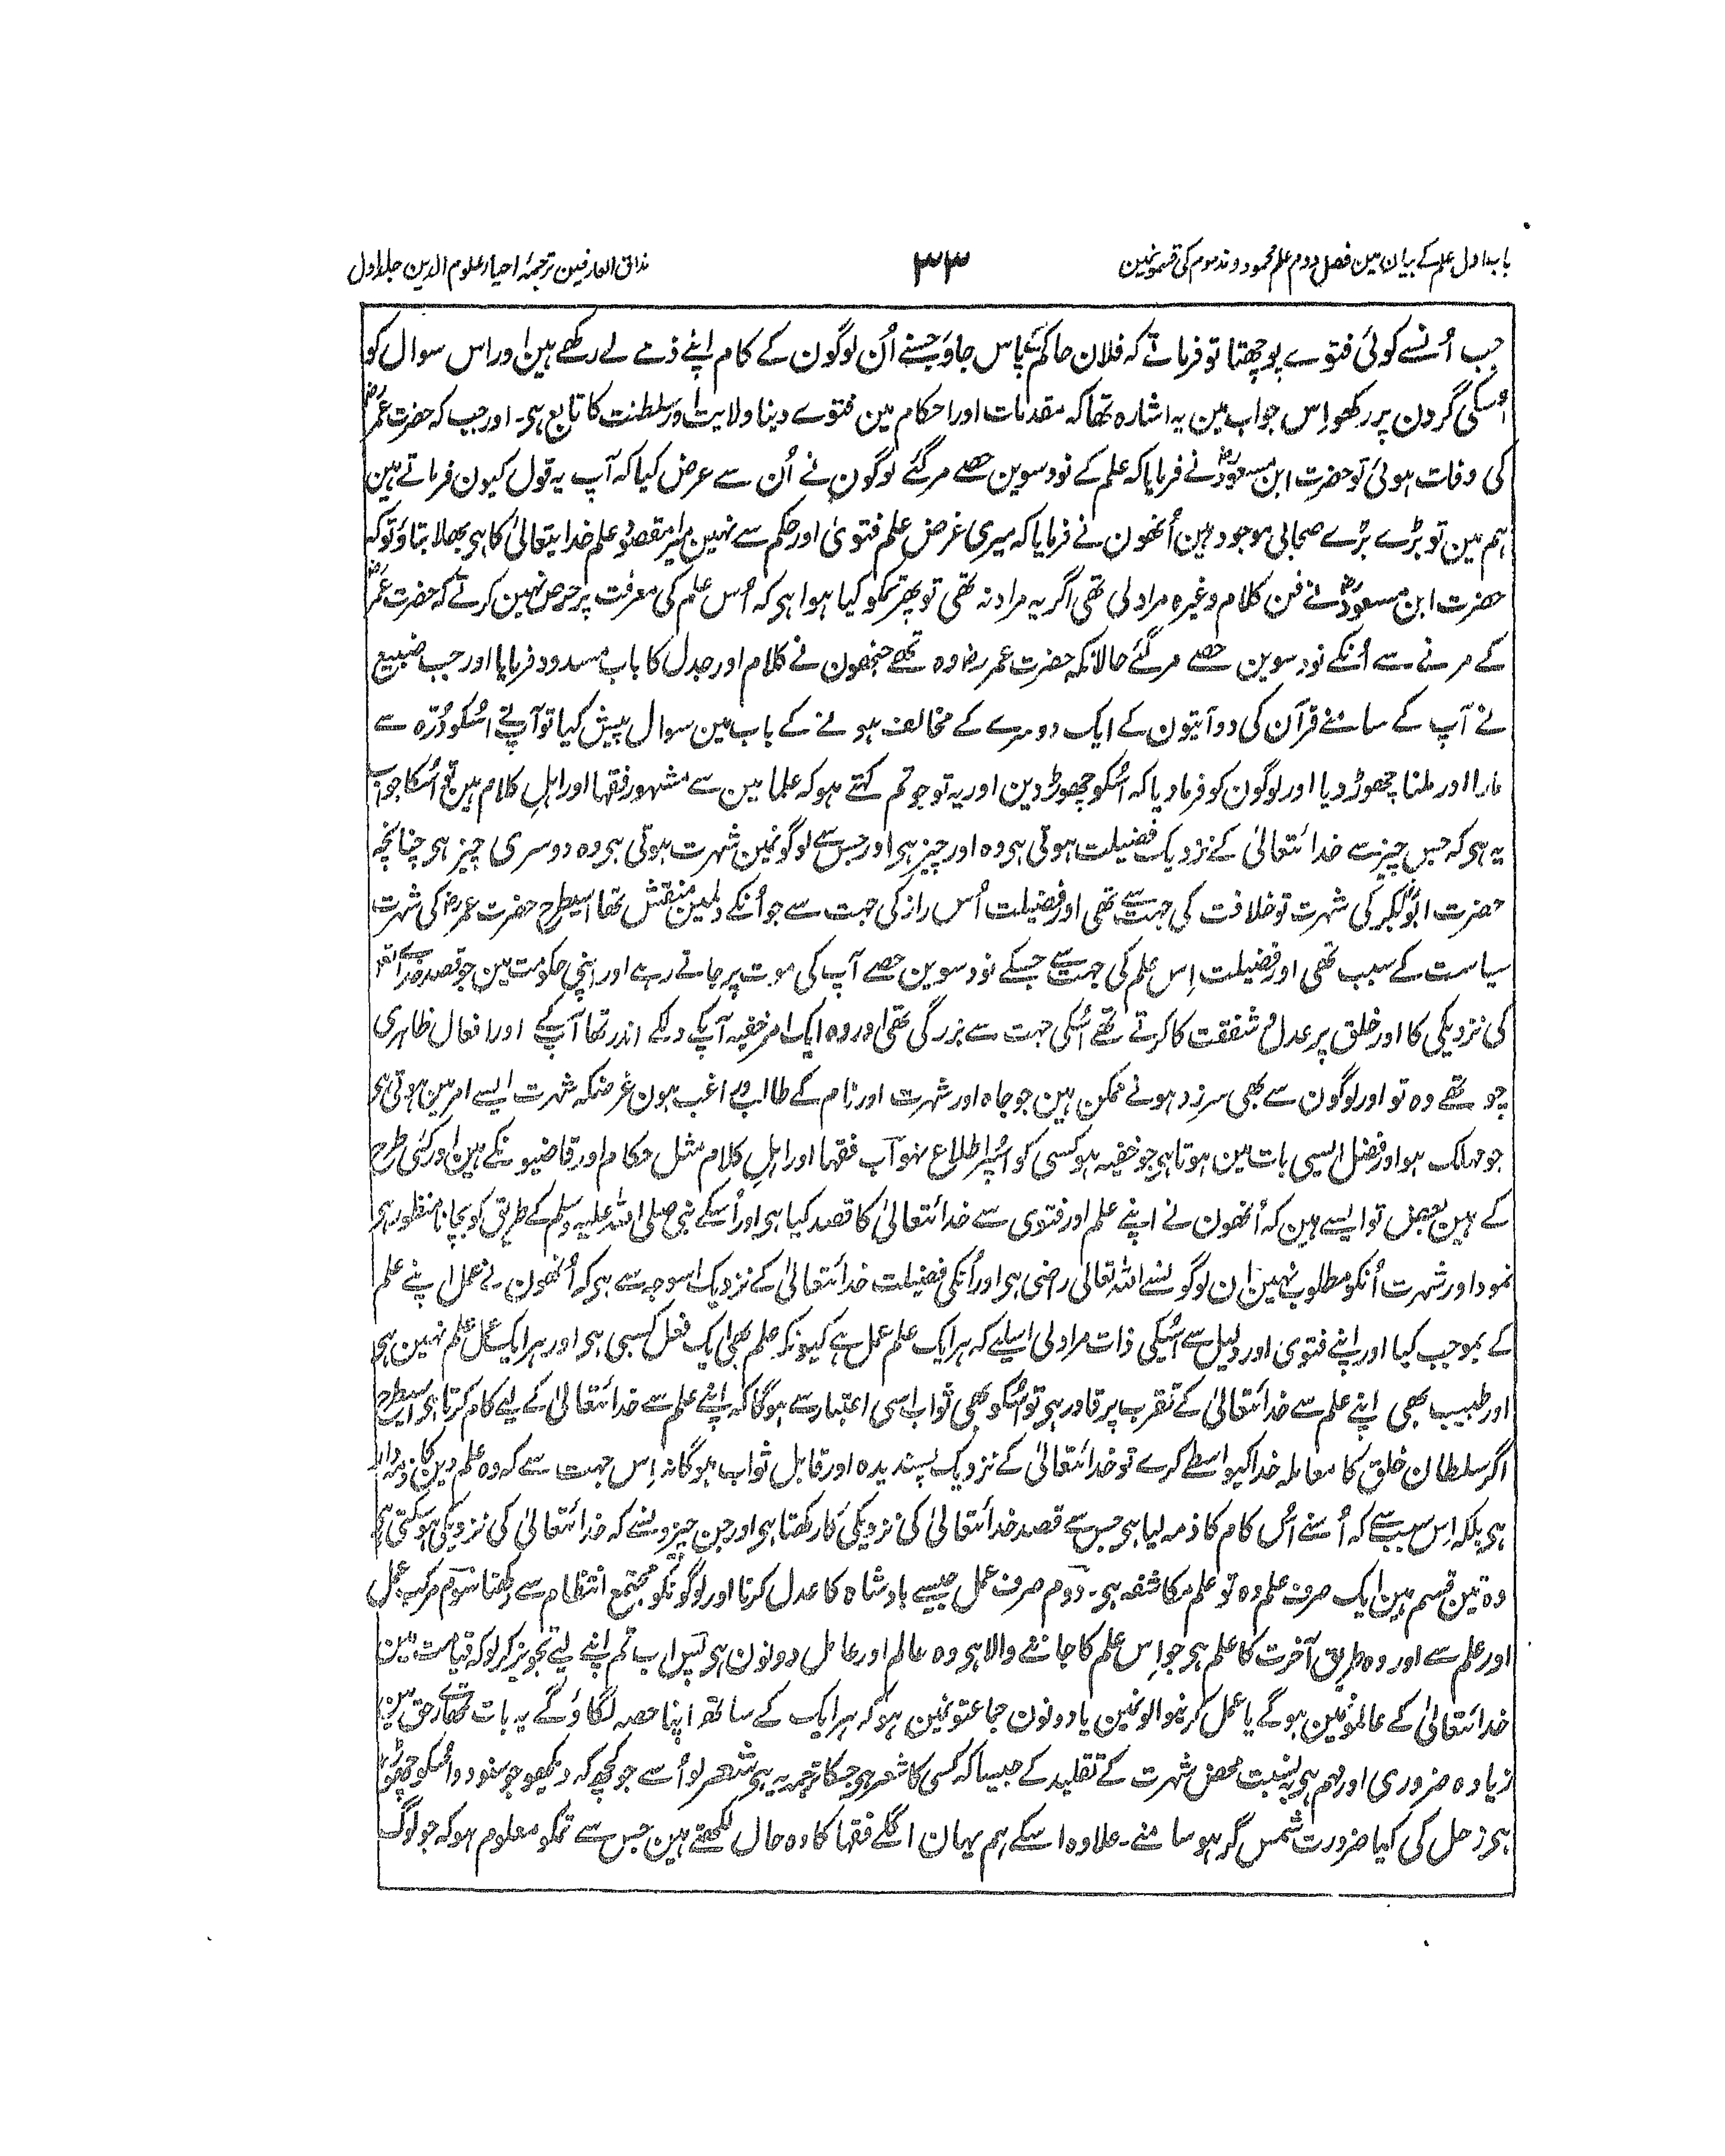 باب اول علم کے بیان مین فصل دوم علم محمود و مذموم کی قسمونمین
۳۳
مذاق العارفین ترجمۂ احیاء علوم الدین جلد اول
جب اُنسے کوئی فتوے پوچھتا تو فرماتے کہ فلان حاکم کے پاس جاؤ جسنے اُن لوگون کے کام اپنے ذمے لے رکھے ہین اور اس سوال کو
اُسکی گردن پر رکھو اِس جواب مین یہ اشارہ تھا کہ مقدمات اور احکام مین فتوے دینا ولایت اور سلطنت کا تابع ہی۔ اور جب کہ حضرت عمرؓ
کی وفات ہوئی تو حضرت ابن مسعودؓ نے فرمایا کہ علم کے نو دسوین حصے مرگئے لوگون نے اُن سے عرض کیا کہ آپ یہ قول کیون فرماتے ہین
ہم مین تو بڑے بڑے صحابی موجود ہین اُنھون نے فرمایا کہ میری غرض علم فتویٰ اور حکم سے نہین میرا مقصود علم خدایتعالیٰ کا ہی بھلا بتاؤ تو کہ
حضرت ابن مسعودؓ نے فن کلام وغیرہ مراد لی تھی اگر یہ مراد نہ تھی تو پھر تمکو کیا ہوا ہی کہ اُس علم کی معرفت پر حرص نہین کرتے کہ حضرت عمرؓ
کے مرنے سے اُنکے نو دسوین حصے مرگئے حالانکہ حضرت عمر رضؓ وہ تھے جنھون نے کلام اور جدل کا باب مسدود فرمایا اور جب ضبیع
نے آپ کے سامنے قرآن کی دو آیتون کے ایک دوسرے کے مخالف ہونے کے باب مین سوال پیش کیا تو آپنے اُسکو دُرّہ سے
مارا اور ملنا چھوڑ دیا اور لوگون کو فرمادیا کہ اُسکو چھوڑ دین اور یہ تو جو تم کہتے ہو کہ علما مین سے مشہور فقہا اور اہلِ کلام ہین تو اُسکا جواب
یہ ہی کہ جس چیز سے خدائتعالیٰ کے نزدیک فضیلت ہوتی ہی وہ اور چیز ہی اور جس سے لوگونمین شہرت ہوتی ہی وہ دوسری چیز ہی چنانچہ
حضرت ابوبکرؓ کی شہرت تو خلافت کی جہت سے تھی اور فضیلت اُس راز کی جہت سے جو اُنکے دلمین منقش تھا اسیطرح حضرت عمر رضؓ کی شہرت
سیاست کے سبب تھی اور فضیلت اِس علم کی جہت سے جسکے نو دسوین حصے آپ کی موت پر جاتے رہے اور اپنی حکومت مین جو قصد خدائتعالےٰ
کی نزدیکی کا اور خلق پر عدل و شفقت کا کرتے تھے اُسکی جہت سے بزرگی تھی اور وہ ایک امر خفیہ آپکے دلکے اندر تھا آپکے اور افعال ظاہری
جو تھے وہ تو اور لوگون سے بھی سرزد ہونے ممکن ہین جو جاہ اور شہرت اور نام کے طالب و راغب ہون غرضکہ شہرت ایسے امر مین ہوتی ہی
جو مہلک ہو اور فضل ایسی بات مین ہوتا ہی جو خفیہ ہو کسی کو اُسپر اطلاع نہو آب فقہا اور اہلِ کلام مثل حکام اور قاضیونکے ہین اور کئی طرح
کے ہین بعض تو ایسے ہین کہ اُنھون نے اپنے علم اور فتوی سے خدائتعالیٰ کا قصد کیا ہی اور اُسکے نبی صلی اللہ علیہ وسلم کے طریق کو بچانا منظور ہی
نمود اور شہرت اُنکو مطلوب نہین ان لوگونسے اللہ تعالی راضی ہی اور اُنکی فضیلت خدائتعالیٰ کے نزدیک اسوجہ سے ہی کہ اُنھون نے عمل اپنے علم
کے بموجب کیا اور اپنے فتویٰ اور دلیل سے اُسیکی ذات مراد لی اسلیے کہ ہر ایک علم عمل ہے کیونکہ علم بھی ایک فعل کسبی ہی اور ہر ایک عمل علم نہین ہی
اور طبیب بھی اپنے علم سے خدائتعالیٰ کے تقرب پر قادر ہی تو اُسکو بھی ثواب اسی اعتبار سے ہوگا کہ اپنے علم سے خدائتعالیٰ کے لیے کام کرتا ہی اسیطرح
اگر سلطان خلق کا معاملہ خدا کیواسطے کرے تو خدائتعالیٰ کے نزدیک پسندیدہ اور قابل ثواب ہوگا نہ اِس جہت سے کہ وہ علم دین کا ذمہ دار
ہی بلکہ اِس سبب سے کہ اُسنے اُس کام کا ذمہ لیا ہی جس سے قصد خدائتعالیٰ کی نزدیکی کا رکھتا ہی اور جن چیزونسے کہ خدائتعالیٰ کی نزدیکی ہوسکتی ہی
وہ تین قسم ہین ایک صرف علم وہ تو علم مکاشفہ ہی۔ دوم صرف عمل جیسے بادشاہ کا عدل کرنا اور لوگونکو مجتمع انتظام سے رکھنا سوم مرکب عمل
اور علم سے اور وہ طریق آخرت کا علم ہی جو اِس علم کا جاننے والا ہی وہ عالم اور عامل دونون ہی پس اب تم اپنے لیے تجویز کرلو کہ قیامت مین
خدائتعالیٰ کے عالمونمین ہوگے یا عمل کرنیوالونمین یا دونون جماعتونمین ہو کہ ہر ایک کے ساتھ اپنا حصہ لگاؤگے یہ بات تمھارے حق مین
زیادہ ضروری اور اہم ہی بنسبت محض شہرت کے تقلید کے جیسا کہ کسی کا شعر ہی جسکا ترجمہ یہ ہی شعر لو اُسے جو کچھ کہ دیکھو جو سنو دو اُسکو چھوڑ
ہی زحل کی کیا ضرورت شمس گر ہو سامنے۔ علاوہ اسکے ہم یہان اگلے فقہا کا وہ حال لکھتے ہین جس سے تمکو معلوم ہو کہ جو لوگ